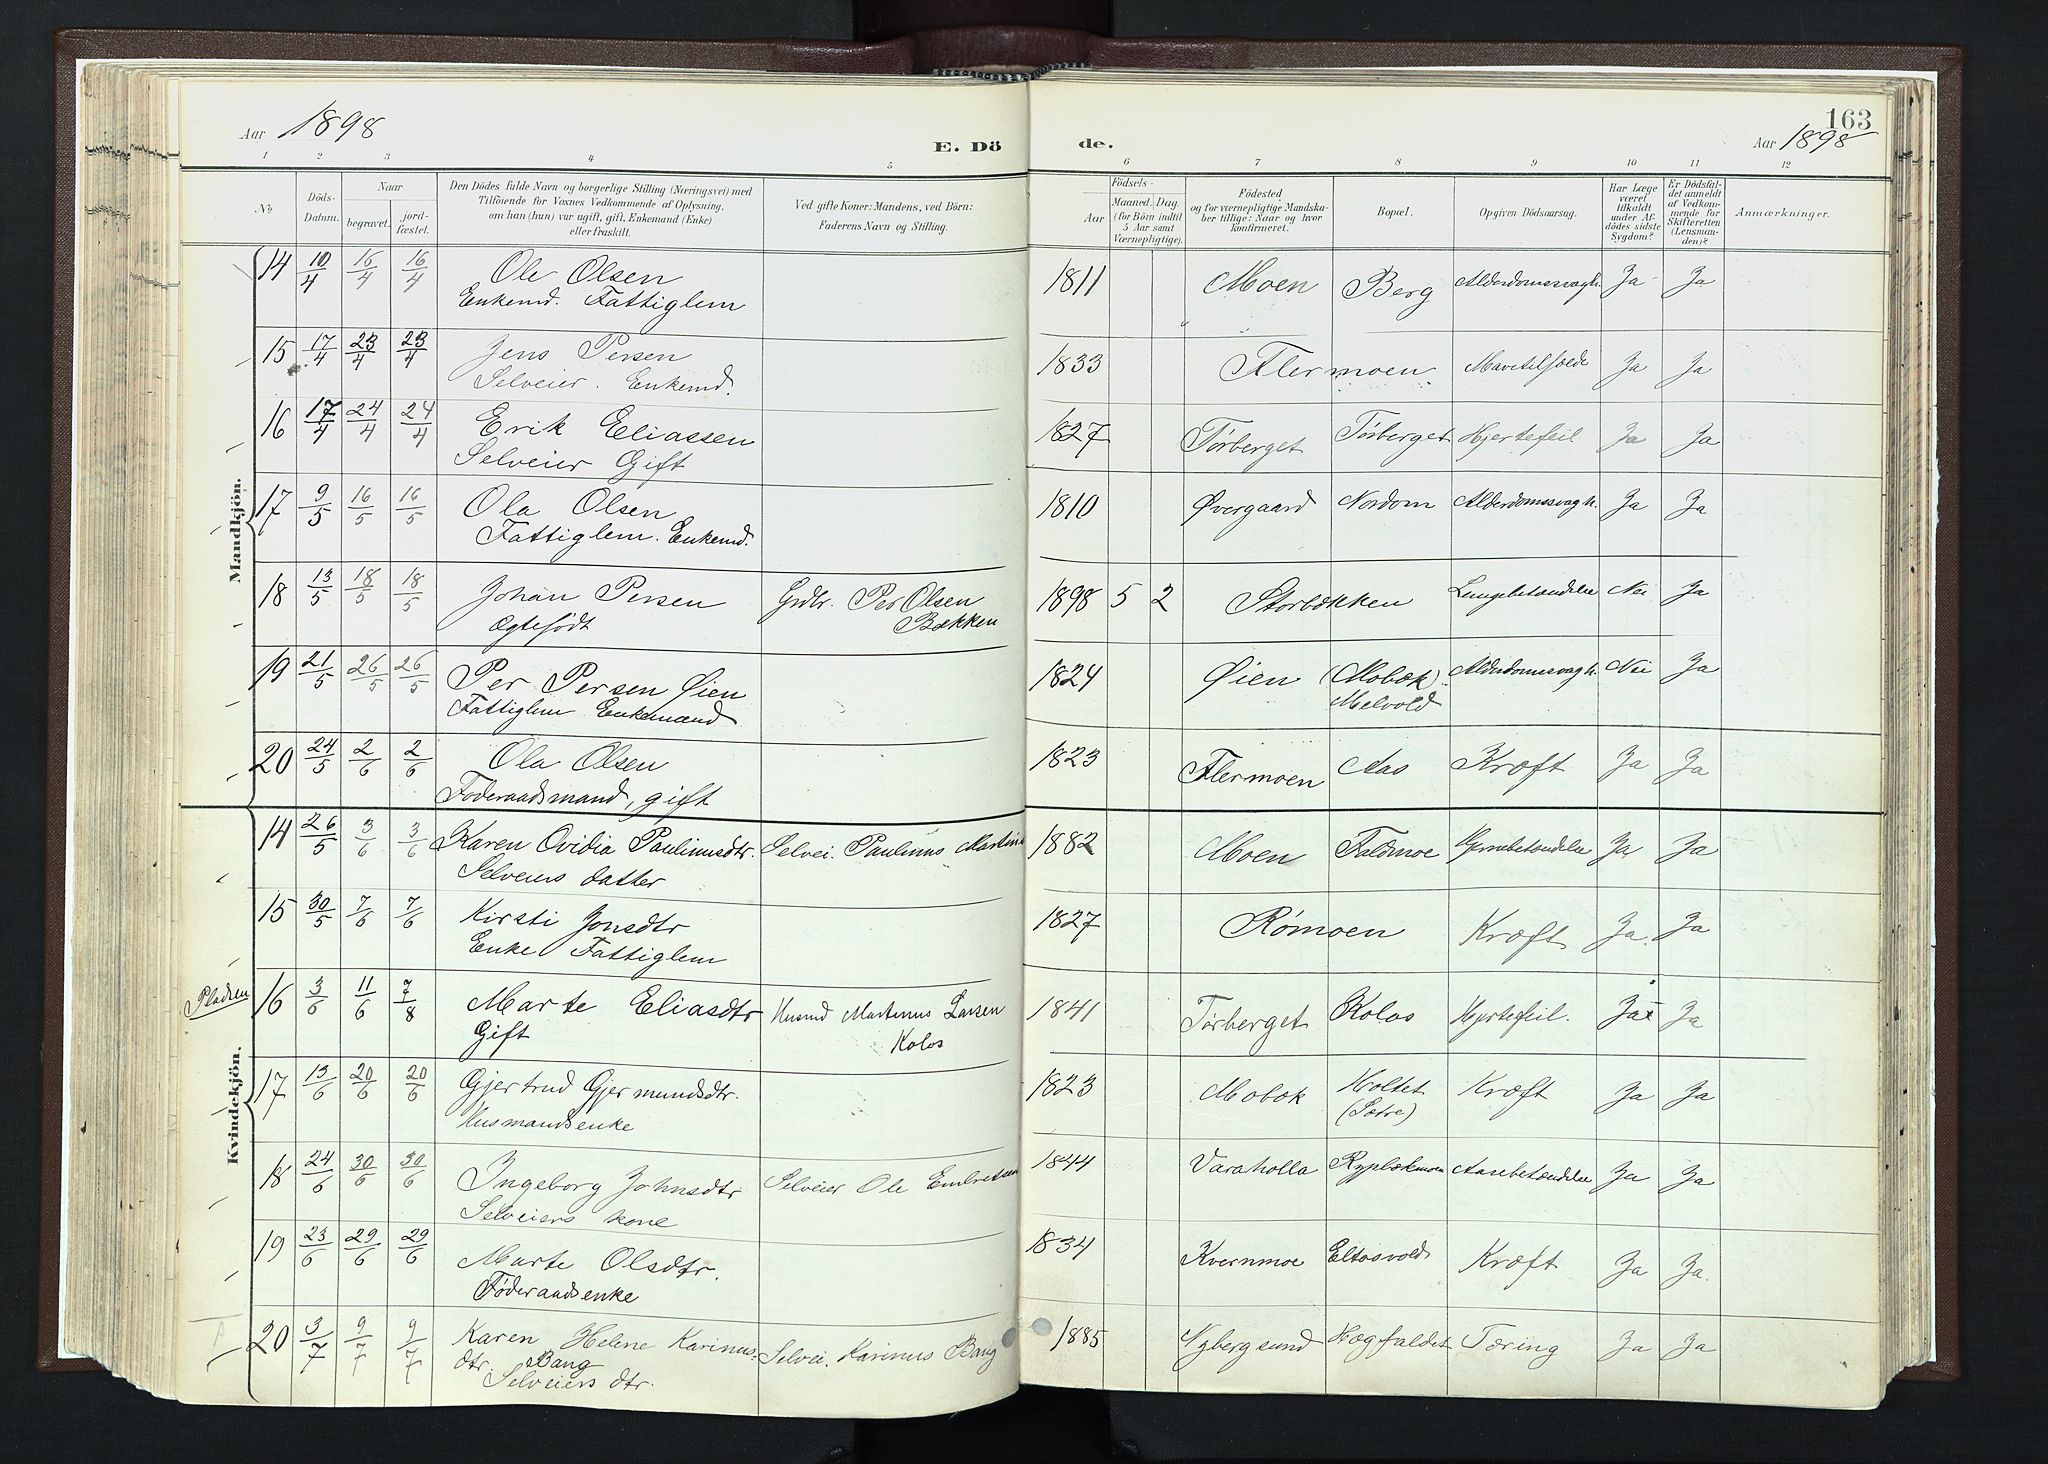 163
Aar 1898
E. Dö
de.
Aar 1898
1 2 3 4 5 6 7 8 9 10 11 12
No
Döds-
Datum.
Naar
begravet.
jord-
fæstet.
Den Dödes fulde Navn og borgerlige Stilling (Næringsvei) med
Tilföiende for Voxnes Vedkommende af Oplysning,
om han (hun) var ugift, gift, Enkemand (Enke)
eller fraskilt.
Ved gifte Koner: Mandens, ved Börn:
Faderens Navn og Stilling.
Födsels-
Aar
Maaned. Dag.
(for Börn indtil
5 Aar samt
Værnepligtige).
Födested
og for værnepligtige Mandska-
ber tillige: Naar og hvor
konfirmeret.
Bopæl.
Opgiven Dödsaarsag.
Har Læge
været
tilkaldt
under Af-
dödes sidste
Sygdom?
Er Dödsfal-
det anmeldt
af Vedkom-
mende for
Skifteretten
(Lensman-
den)?
Anmærkninger.
Mandkjön.
14 10/4 16/4 16/4 Ole Olsen 1811 Moen Berg Alderdomssvagh. Ja Ja
Enkemd. Fattiglem
15 17/4 23/4 23/4 Jens Persen 1833 Flermoen Mavetilfælde Ja Ja
Selveier. Enkemd.
16 17/4 24/4 24/4 Erik Eliassen 1827 Tørberget Tørberget Hjertefeil Ja Ja
Selveier Gift
17 9/5 16/5 16/5 Ola Olsen 1810 Øvergaard Nordom Alderdomssvagh. Ja Ja
Fattiglem. Enkemd.
18 13/5 18/5 18/5 Johan Persen Grdbr. Per Olsen 1898 5 2 Storbækken Lungebetændelse Nei Ja
Ægtefødt Bækken
19 21/5 26/5 26/5 Per Persen Øien 1824 Øien (Mobæk) Alderdomssvagh. Nei Ja
Fattiglem Enkemand Melvold
20 24/5 2/6 2/6 Ola Olsen 1823 Flermoen Aas Kræft Ja Ja
Føderaadsmand, gift
Kvindekjön.
14 26/5 3/6 3/6 Karen Ovidia Paulinusdtr. Selvei. Paulinus 1882 Moen Faldmoe Ja Ja
Selveiers datter
15 30/5 7/6 7/6 Kirsti Jonsdtr 1827 Rømoen Kræft Ja. Ja
Enke Fattiglem
Pladsen
16 3/6 11/6 7/8 Marte Eliasdtr Husmd Martinus Larsen 1841 Tørberget Kolos Hjertefeil. Ja x Ja
Gift Kolos
17 13/6 20/6 20/6 Gjertrud Gjermundsdtr. 1823 Mobæk Holtet Kræft Ja Ja
Husmandsenke (Sætre)
18 24/6 30/6 30/6 Ingeborg Johnsdtr Selveier Ole Embretsen 1844 Varaholla Ryplækmoen Aarebetændelse Ja Ja
Selveiers kone
19 23/6 29/6 29/6 Marte Olsdtr. 1834 Kvernmoe Eltosvold Kræft Ja Ja.
Føderaadsenke
20 3/7 9/7 9/7 Karen Helene Karinus- Selvei. Karinus Bang 1885 Nybergsund Hægfaldet Tæring Ja Ja
dtr. Bang
Selveiers dtr.